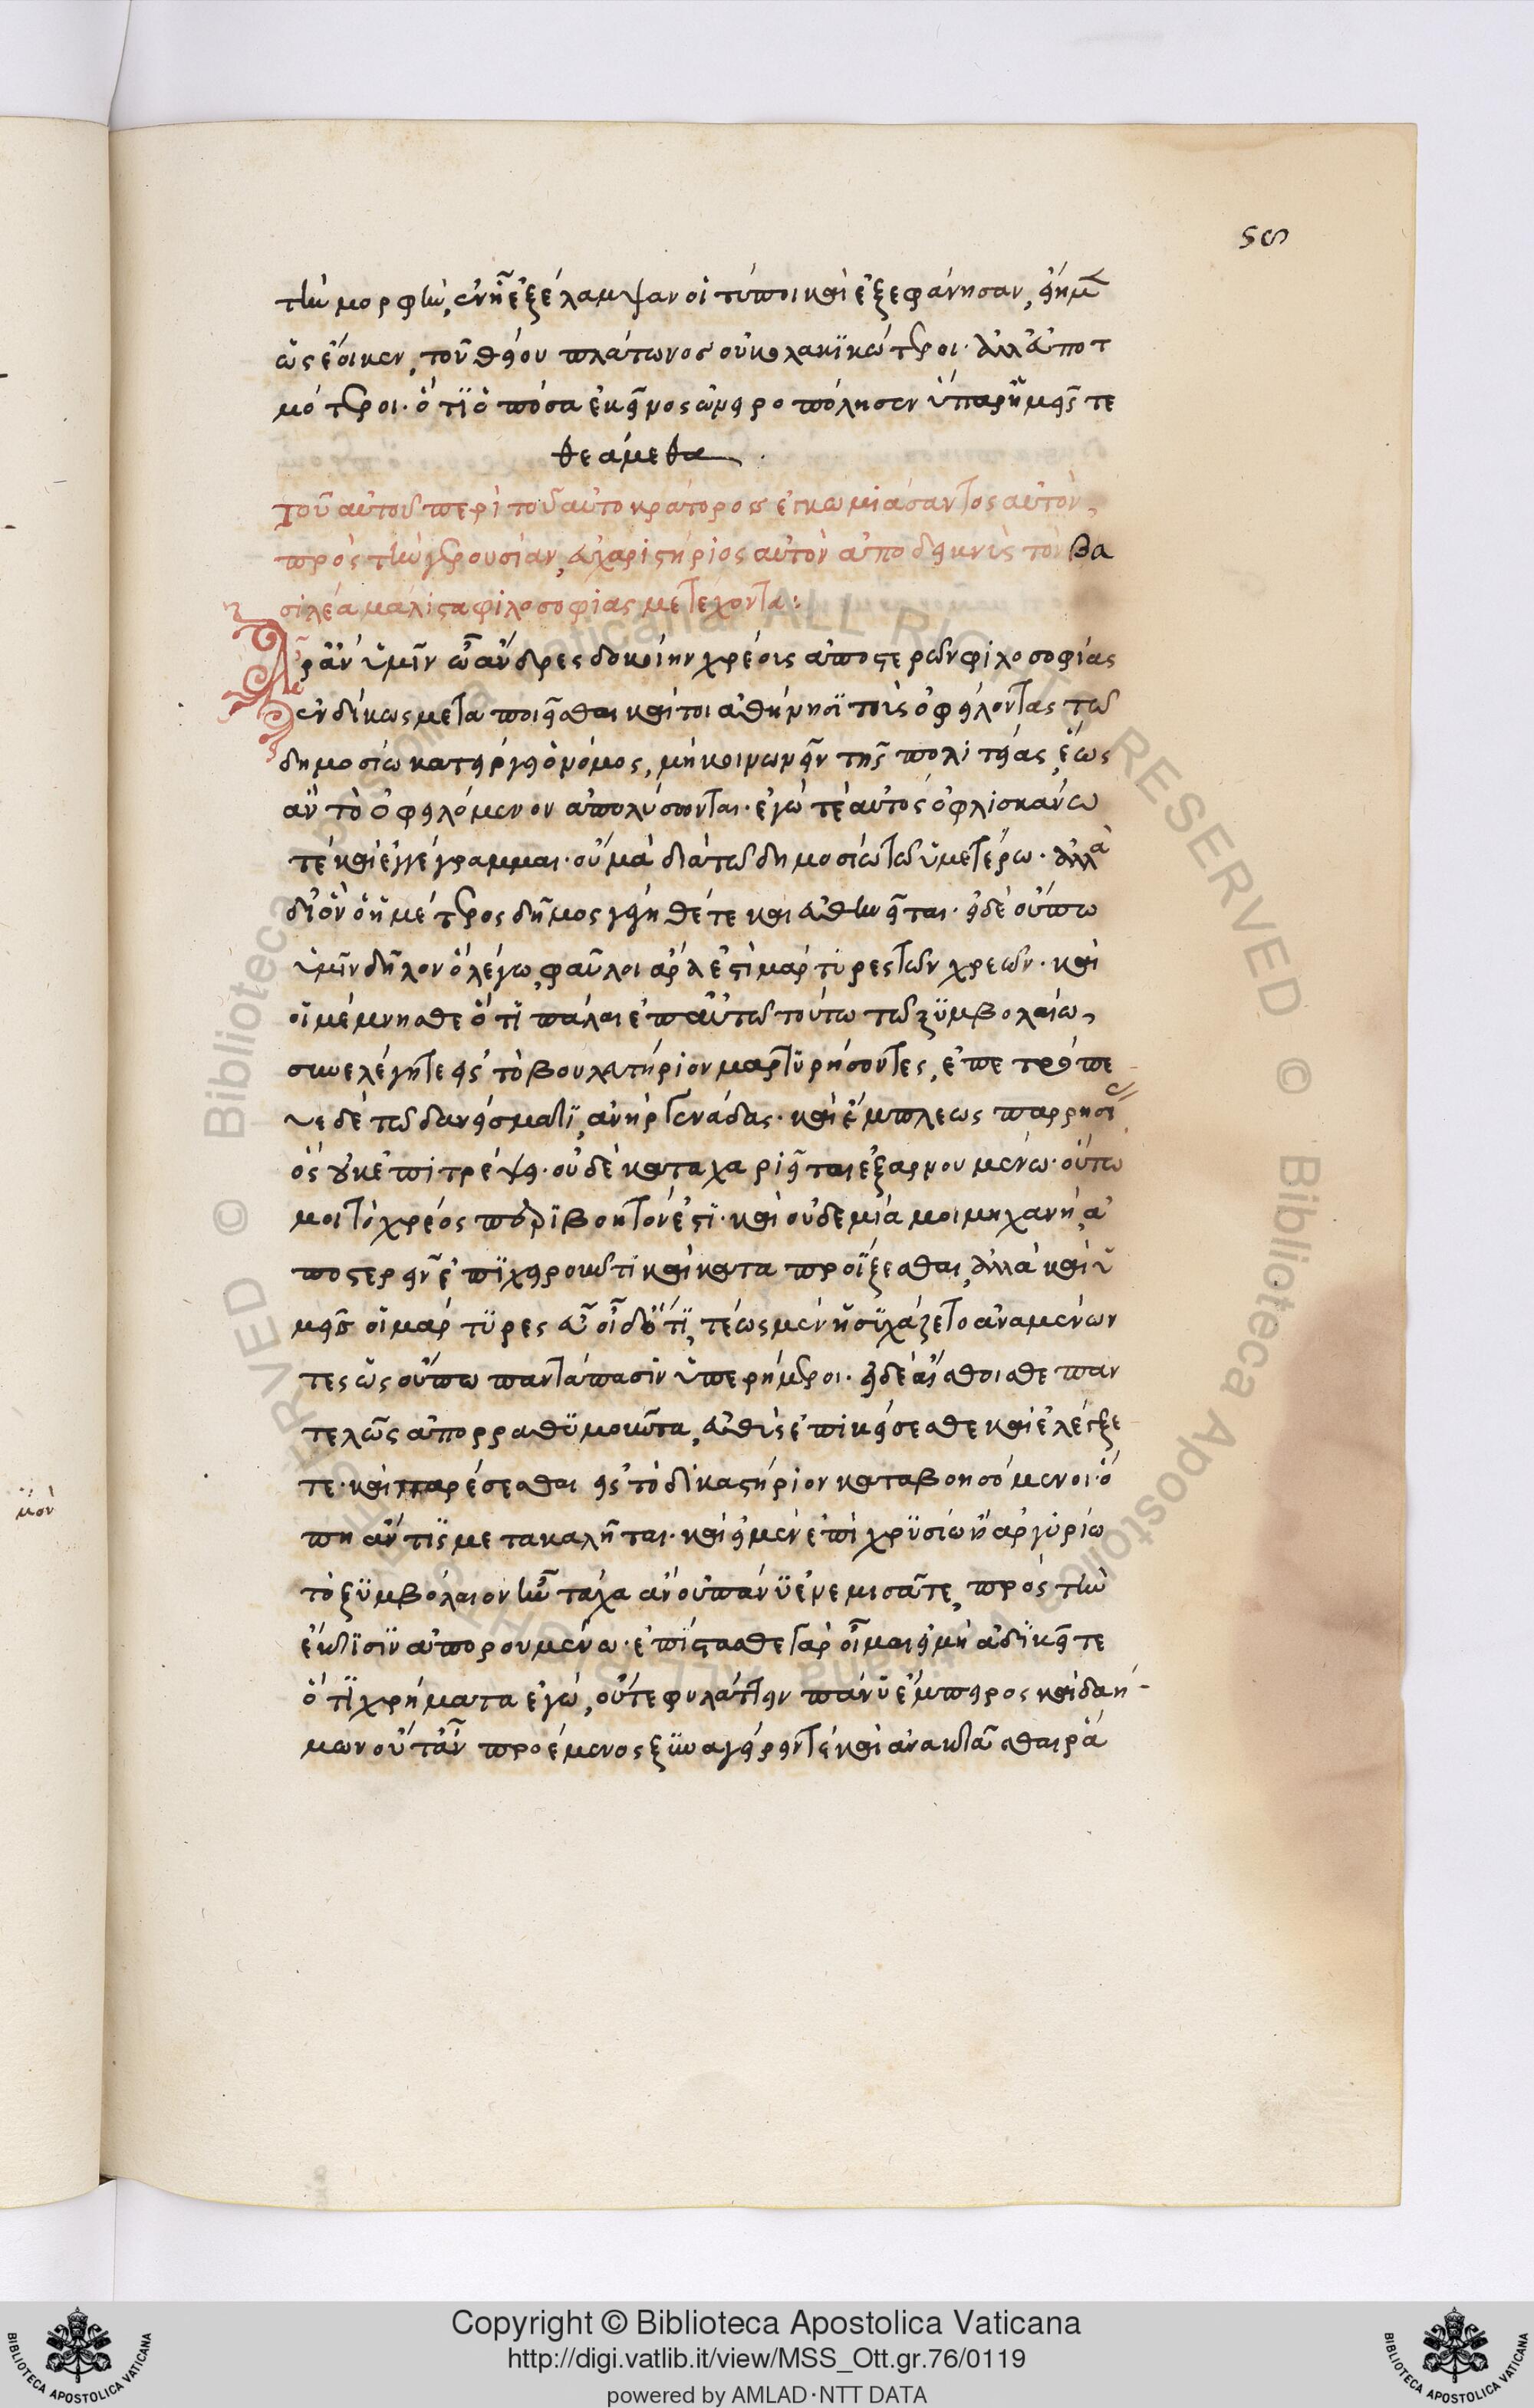 56
τὴν μορφὴν, ἐν ἧ ἐξέλαμψαν οἱ τύποι καὶ ἐξεφάνησαν, εἰ ἡμεῖς
ὡς ἔοικεν, τοῦ θείου πλάτωνος οὐ κολακϊκώτεροι· ἀλλ' ἀποτ
μότεροι· ὅτϊ ὁπόσα ἐκεῖνος ὠνειροπόλησεν ὕπαρ ἡμεῖς τε
θεάμεθα.
Τοῦ αὐτοῦ περὶ τοῦ αὐτοκράτορος ἐγκωμιάσαντος αὐτὸν,
πρὸς τὴν γερουσίαν, εὐχαριστήριος αὐτὸν ἀποδεικνὺς τὸν βα
σιλέα μάλιστα φιλοσοφίας μετέχοντα:
Ἆρ' ἂν ὑμῖν ὦ ἄνδρες δοκοίην χρέοις ἀποστερῶν φιλοσοφίας
ἐνδίκως μεταποιεῖσθαι καὶ τοι ἀθήνησϊ τοὺς ὀφείλοντας τῶ
δημοσίω κατείργει ὁ νόμος, μὴ κοινωνεῖν τῆς πολιτείας, ἕως
ἂν τὸ ὀφειλόμενον ἀπολύσωνται· ἐγώ τὲ αὐτὸς ὀφλισκάνω
τὲ καὶ ἐγγέγραμμαι· οὐ μὰ δία τῶ δημοσίω τῶ ὑμετέρω· ἀλλὰ
δι' ὃν ὁ ἡμέτερος δῆμος γήηθέ τε καὶ εὐθηνεῖται· εἰ δὲ οὔπω
ὑμῖν δῆλον ὃ λέγω, φαῦλοι ἄρα ἐστὲ μάρτυρες τῶν χρεῶν· καὶ
οἳ μέμνησθε ὅτϊ πάλαι ἐπ' αὐτῶ τούτω τῶ ξυμβολαίω,
συνελέγητε εἰς τὸ βουλευτήριον μαρτυρήσοντες, ἐπέτρεπε
νε δὲ τῶ δανείσματϊ, ἀνὴρ γεννάδας· καὶ ἔμπλεως παρρησί
ὃς οὐκ ἐπιτρέψει· οὐδὲ καταχαριεῖται ἐξαρνουμένω· οὕτω
μοι τὸ χρέος περϊβόητόν ἐστϊ· καὶ οὐδεμία μοι μηχανὴ, ἀ
ποστερεῖν ἐπϊχειροῦντι καὶ καταπροΐξεσθαι, ἀλλὰ καὶ ὑ
μεῖς οἱ μάρτυρες εὖ οἶδ' ὅτϊ, τέως μὲν ἡσυχάζετο ἀναμένων
τες ὡς οὔπω παντάπασϊν ὑπερήμεροι· εἰ δὲ αἴσθοισθε παν
τελῶς ἀπορραθυμοῦντα, εὐθὺς ἐπικείσεσθε καὶ ἐλέγξε
τε· καὶ παρέσεσθαι εἰς τὸ δικαστήριον καταβοησόμενοι· ὅ
πη ἄν τϊς μετακαλῆται· καὶ εἰ μὲν ἐπὶ χρυσίω ἢ ἀργυρίω
τὸ ξυμβόλαιον ἦν τάχα ἂν οὐ πάνυ ἐνεμεσᾶτε, πρὸς τὴν
ἔκτϊσϊν ἀπορουμένω· ἐπίστασθε γὰρ οἶμαι εἰ μὴ ἀδϊκεῖτε
ὅτϊ χρήματα ἐγὼ, οὔτε φυλάττειν πάνυ ἔμπειρος καὶ δαή-
μων οὔτ' ἂν προέμενος ξυναγείρειν τὲ καὶ ἀνακτᾶσθαι ῥᾴ
μον
Copyright © Biblioteca Apostolica Vaticana
http://digi.vatlib.it/view/MSS_Ott.gr.76/0119
powered by AMLAD·NTT DATA
BIBLIOTECA APOSTOLICA VATICANA
BIBLIOTECA APOSTOLICA VATICANA